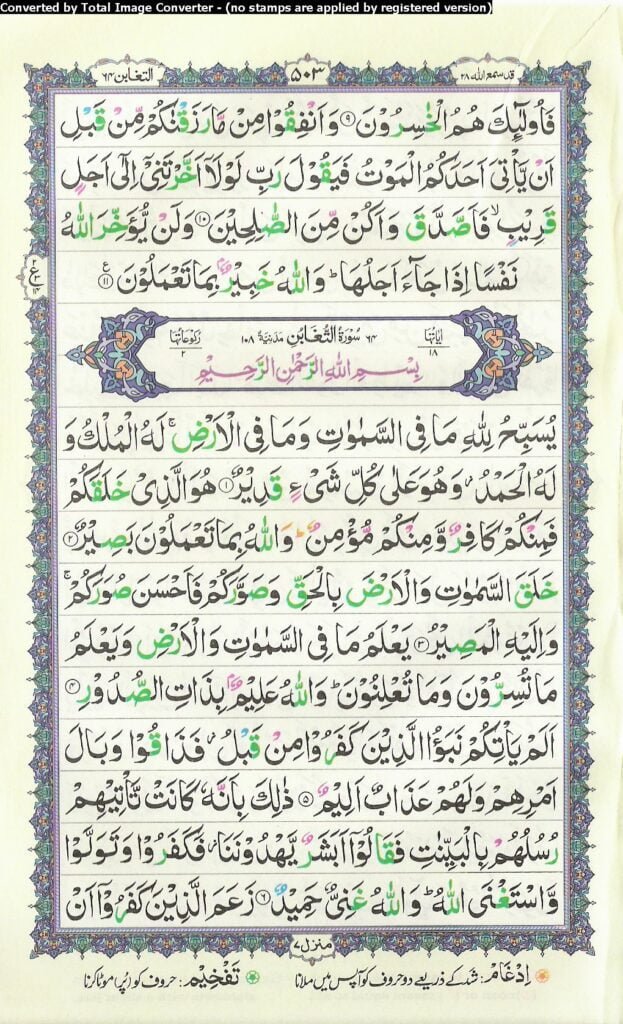 Converted by Total Image Converter - (no stamps are applied by registered version)
قد سمع الله ٢٨
٥٠٣
التغابن ٦٤
فَاُولٰٓئِكَ هُمُ الْخٰسِرُوْنَ ﴿۹﴾ وَاَنْفِقُوْا مِنْ مَّا رَزَقْنٰكُمْ مِّنْ قَبْلِ
اَنْ يَّاْتِيَ اَحَدَكُمُ الْمَوْتُ فَيَقُوْلَ رَبِّ لَوْلَاۤ اَخَّرْتَنِيْۤ اِلٰۤى اَجَلٍ
قَرِيْبٍ ۙ فَاَصَّدَّقَ وَاَكُنْ مِّنَ الصّٰلِحِيْنَ ﴿۱۰﴾ وَلَنْ يُّؤَخِّرَ اللّٰهُ
نَفْسًا اِذَا جَآءَ اَجَلُهَا ؕ وَاللّٰهُ خَبِيْرٌۢ بِمَا تَعْمَلُوْنَ ﴿۱۱﴾
اٰيَاتُهَا ١٨
٦٤ سُوْرَةُ التَّغَابُنِ مَدَنِيَّةٌ ١٠٨
رُكُوْعَاتُهَا ٢
بِسْمِ اللّٰهِ الرَّحْمٰنِ الرَّحِيْمِ
يُسَبِّحُ لِلّٰهِ مَا فِي السَّمٰوٰتِ وَمَا فِي الْاَرْضِ ۚ لَهُ الْمُلْكُ وَ
لَهُ الْحَمْدُ ؗ وَهُوَ عَلٰى كُلِّ شَيْءٍ قَدِيْرٌ ﴿۱﴾ هُوَ الَّذِيْ خَلَقَكُمْ
فَمِنْكُمْ كَافِرٌ وَّمِنْكُمْ مُّؤْمِنٌ ؕ وَاللّٰهُ بِمَا تَعْمَلُوْنَ بَصِيْرٌ ﴿۲﴾
خَلَقَ السَّمٰوٰتِ وَالْاَرْضَ بِالْحَقِّ وَصَوَّرَكُمْ فَاَحْسَنَ صُوَرَكُمْ ۚ
وَاِلَيْهِ الْمَصِيْرُ ﴿۳﴾ يَعْلَمُ مَا فِي السَّمٰوٰتِ وَالْاَرْضِ وَيَعْلَمُ
مَا تُسِرُّوْنَ وَمَا تُعْلِنُوْنَ ؕ وَاللّٰهُ عَلِيْمٌۢ بِذَاتِ الصُّدُوْرِ ﴿۴﴾
اَلَمْ يَاْتِكُمْ نَبَؤُا الَّذِيْنَ كَفَرُوْا مِنْ قَبْلُ ؗ فَذَاقُوْا وَبَالَ
اَمْرِهِمْ وَلَهُمْ عَذَابٌ اَلِيْمٌ ﴿۵﴾ ذٰلِكَ بِاَنَّهٗ كَانَتْ تَّاْتِيْهِمْ
رُسُلُهُمْ بِالْبَيِّنٰتِ فَقَالُوْۤا اَبَشَرٌ يَّهْدُوْنَنَا ؗ فَكَفَرُوْا وَتَوَلَّوْا
وَّاسْتَغْنَى اللّٰهُ ؕ وَاللّٰهُ غَنِيٌّ حَمِيْدٌ ﴿۶﴾ زَعَمَ الَّذِيْنَ كَفَرُوْۤا اَنْ
منزل ٧
اِدْغَامْ: شد کے ذریعے دو حروف کو آپس میں ملانا
تَفْخِيْم: حروف کو پُر موٹا کرنا